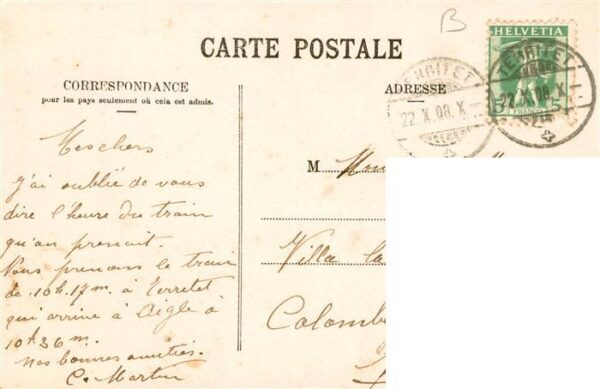 B
CARTE POSTALE
HELVETIA
5 FRANCO 5
TERRITET
22.X.08.X
TERRITET
22.X.08.X
CORRESPONDANCE
pour les pays seulement où cela est admis.
ADRESSE
Mes chers
j'ai oublié de vous
dire l'heure du train
qu'on prenait.
Nous prenons le train
de 10h.17m. à Territet
qui arrive à Aigle à
10h 36m.
Nos bonnes amitiés.
C. Martin
M.
Villa la
Colomb